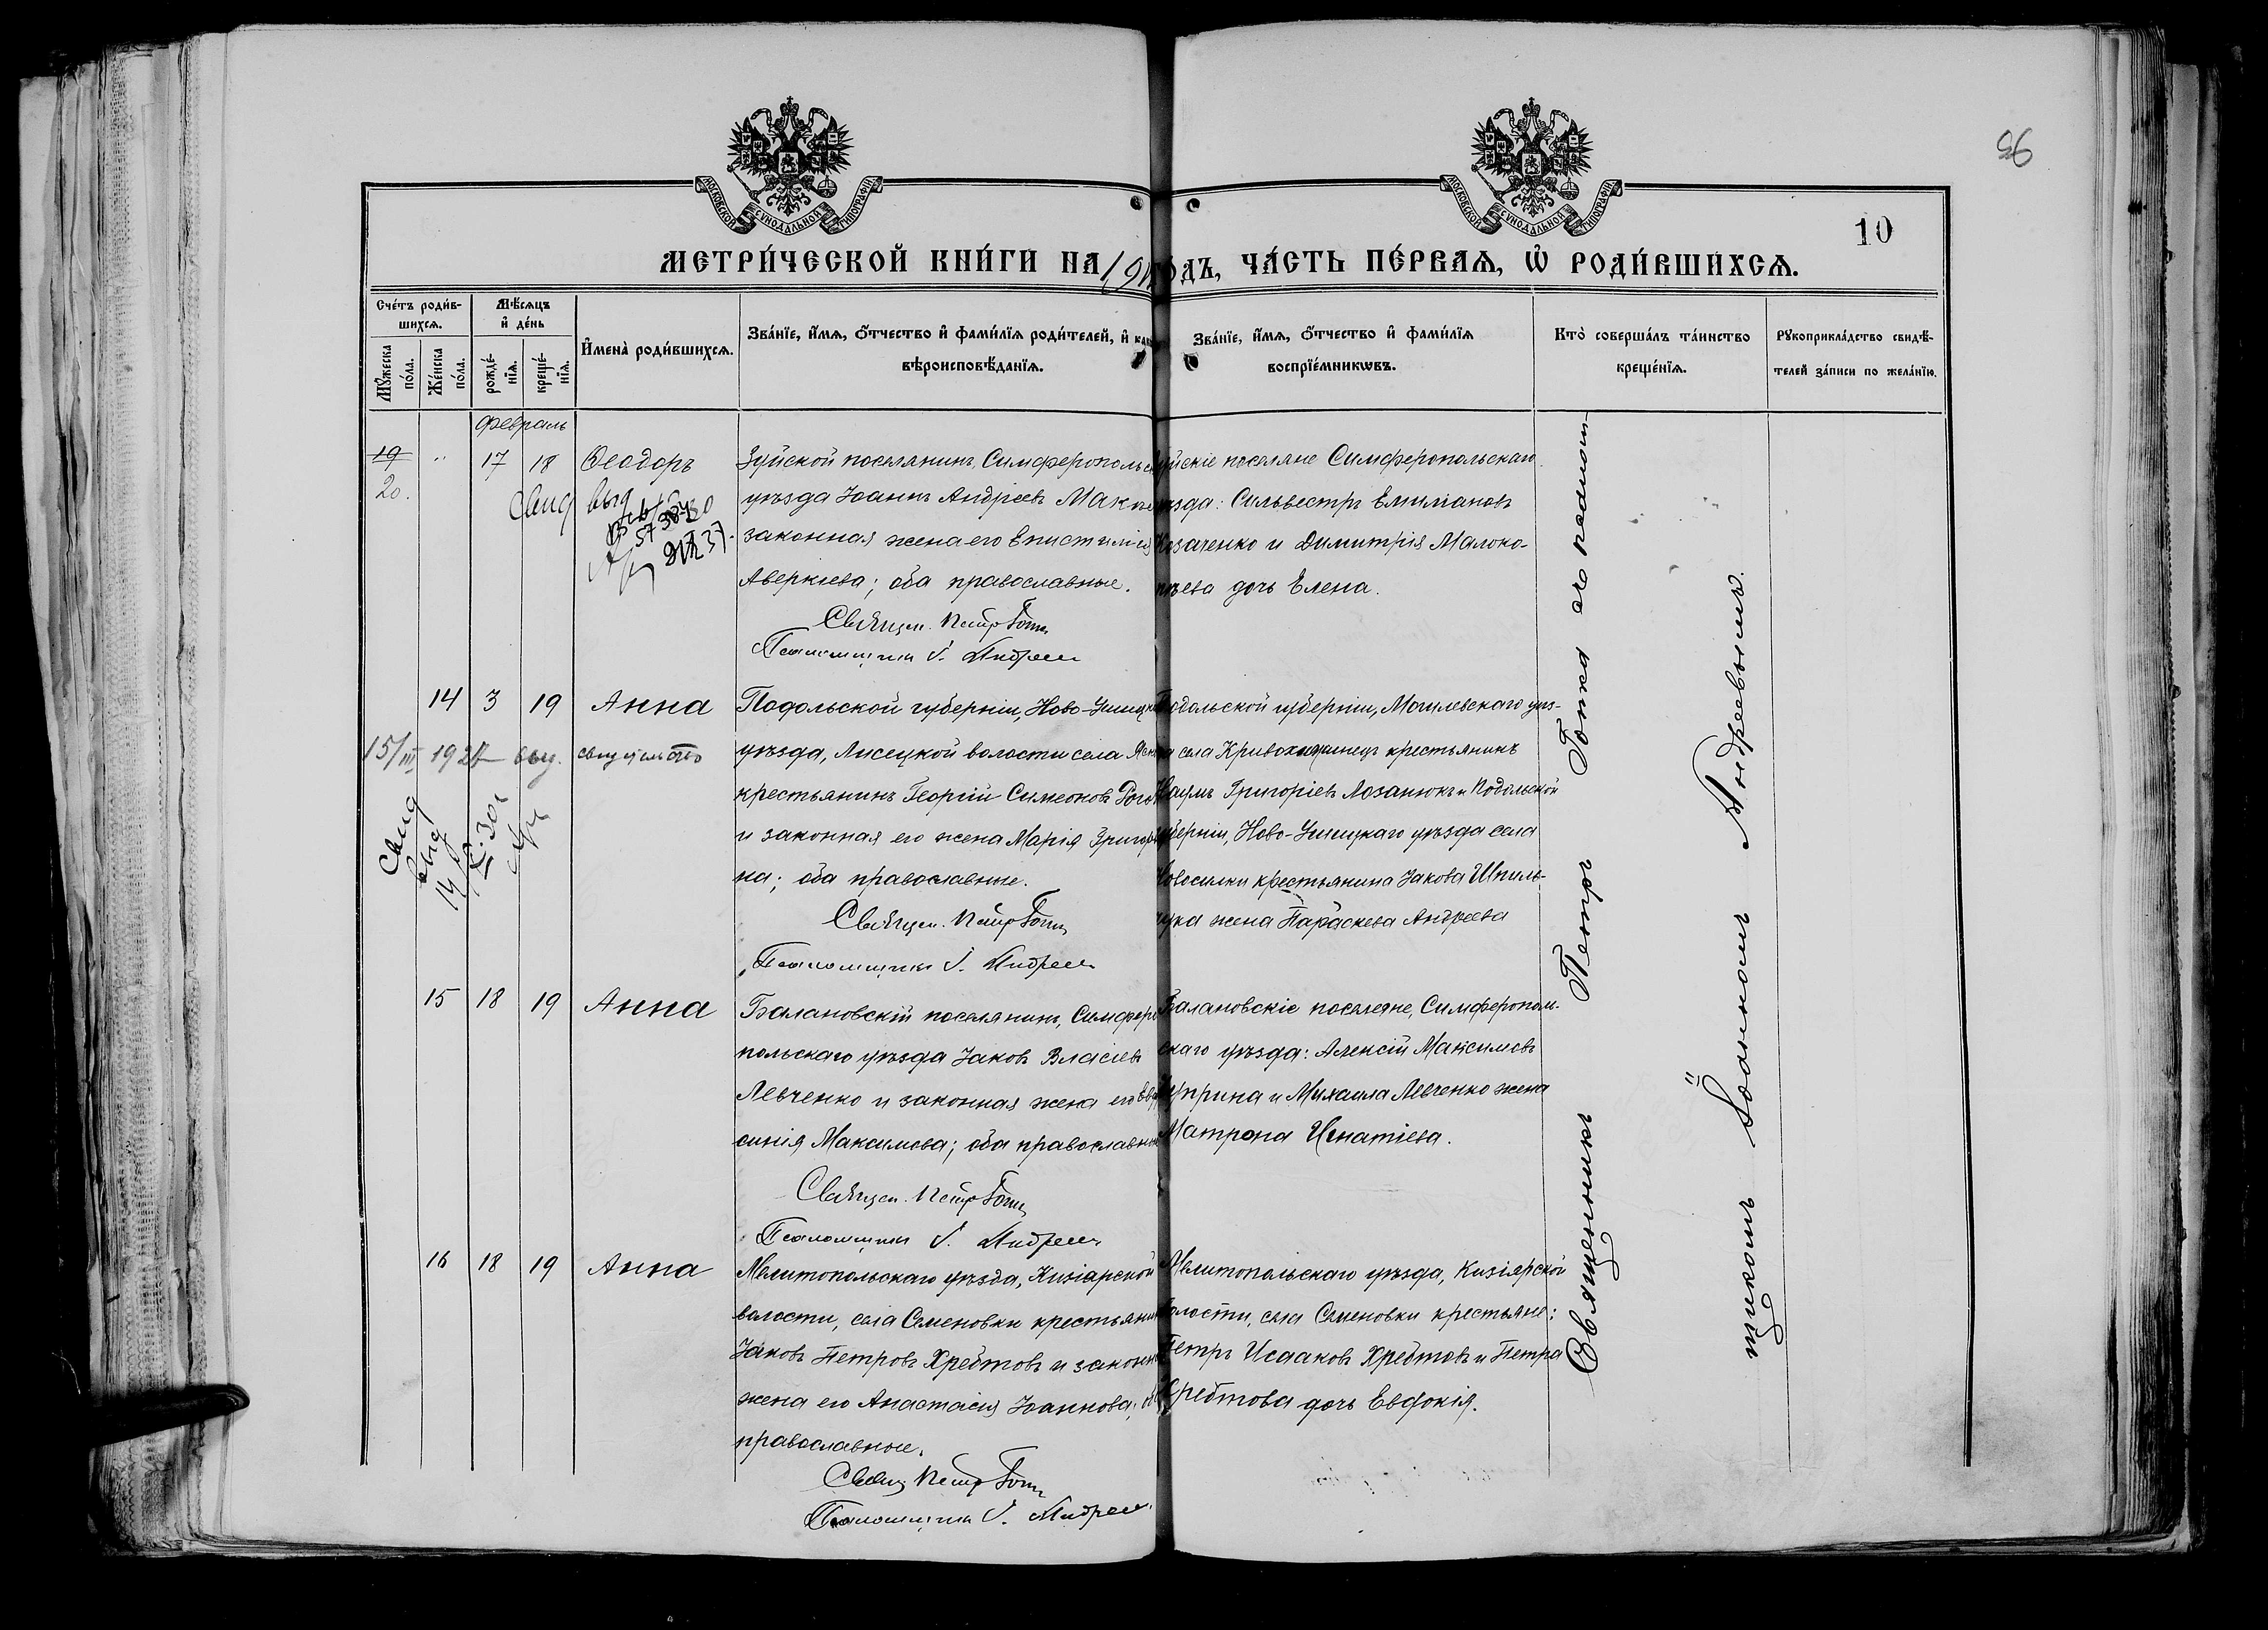 96
10
МОСКОВСКОЙ СѴНОДАЛЬНОЙ ТИПОГРАФІИ
МОСКОВСКОЙ СѴНОДАЛЬНОЙ ТИПОГРАФІИ
МЕТРИ́ЧЕСКОЙ КНИ́ГИ НА 191 ГОДЪ, ЧА́СТЬ ПЕ́РВАѦ, Ѡ РОДИ́ВШИХСѦ.
Счетъ родив-
шихсѧ.
Мужеска
пола.
Женска
пола.
Мѣсѧцъ
и день
рожде-
нїѧ.
креще-
нїѧ.
Имена родившихсѧ.
Званїе, имѧ, отчество и фамилїѧ родителей, и как
вѣроисповѣданїѧ.
Званїе, имѧ, отчество и фамилїѧ
воспрїемникѡвъ.
Кто совершалъ таинство
крещенїѧ.
Рукоприкладство свидѣ-
телей записи по желанїю.
Февраль
19 " 17 18 Ѳеодоръ
20.
Свид выд
Зуйской поселянинъ, Симферопольск
уѣзда Іоаннъ Андреевъ Мак
законная жена его Епистимія
Аверкіева; оба православные.
Священ. Петр Готка
Псаломщикъ І. Андреев
уйскіе поселяне Симферопольскаго
уѣзда: Сильвестръ Емиліановъ
Козаченко и Димитрія Малоко-
пѣева дочь Елена.
14 3 19 Анна
15/III 192 выд. свидѣтельство
Свид
выд
14
Подольской губерніи, Ново-Ушицк
уѣзда, Лисецкой волости села
крестьянинъ Георгій Симеоновъ
и законная его жена Марія Григорь
на; оба православные.
Священ. Петр Готка
Псаломщикъ І. Андреев
Подольской губерніи, Могилевскаго уѣз-
да села Кривохижинецъ крестьянинъ
Наумъ Григоріевъ Лозанюкъ и Подольской
губерніи, Ново-Ушицкаго уѣзда села
Новосилки крестьянина Іакова Шпиль-
чука жена Параскева Андреева
15 18 19 Анна
Балановскій поселянинъ, Симферо
польскаго уѣзда Іаковъ Власіевъ
Левченко и законная жена его Евфро
синія Максимова; оба православные
Священ. Петр Готка
Псаломщикъ І. Андреев
Балановскіе поселяне, Симферополь-
скаго уѣзда: Алексій Максимовъ
Чуприна и Михаила Левченко жена
Матрона Игнатіева.
16 18 19 Анна
Мелитопольскаго уѣзда, Кизіярской
волости, села Семеновки крестьянин
Іаковъ Петровъ Хребтовъ и законн
жена его Анастасія Іоаннова; об
православные.
Свящ Петр Готка
Псаломщикъ І. Андреев
Мелитопольскаго уѣзда, Кизіярской
волости, села Семеновки крестьяне:
Петръ Исааковъ Хребтовъ и Петра
Хребтова дочь Евдокія.
Священникъ Петръ Готка съ псалом-
щикомъ Іоанномъ Андреевымъ.